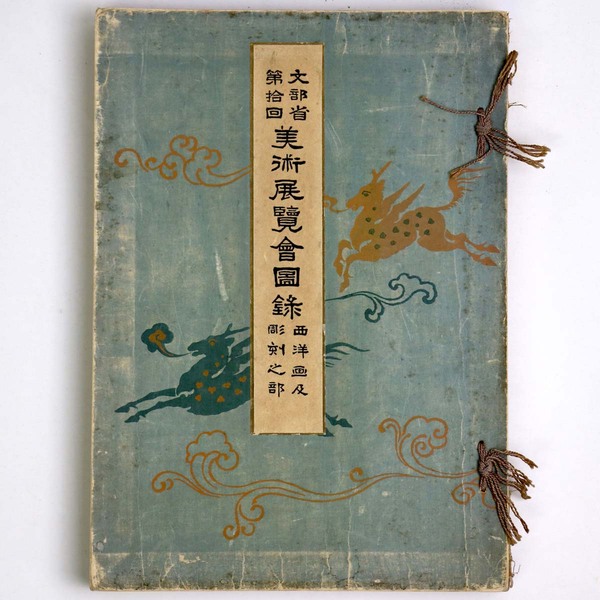 文部省
第拾回
美術展覽會圖錄
西洋画及
彫刻之部